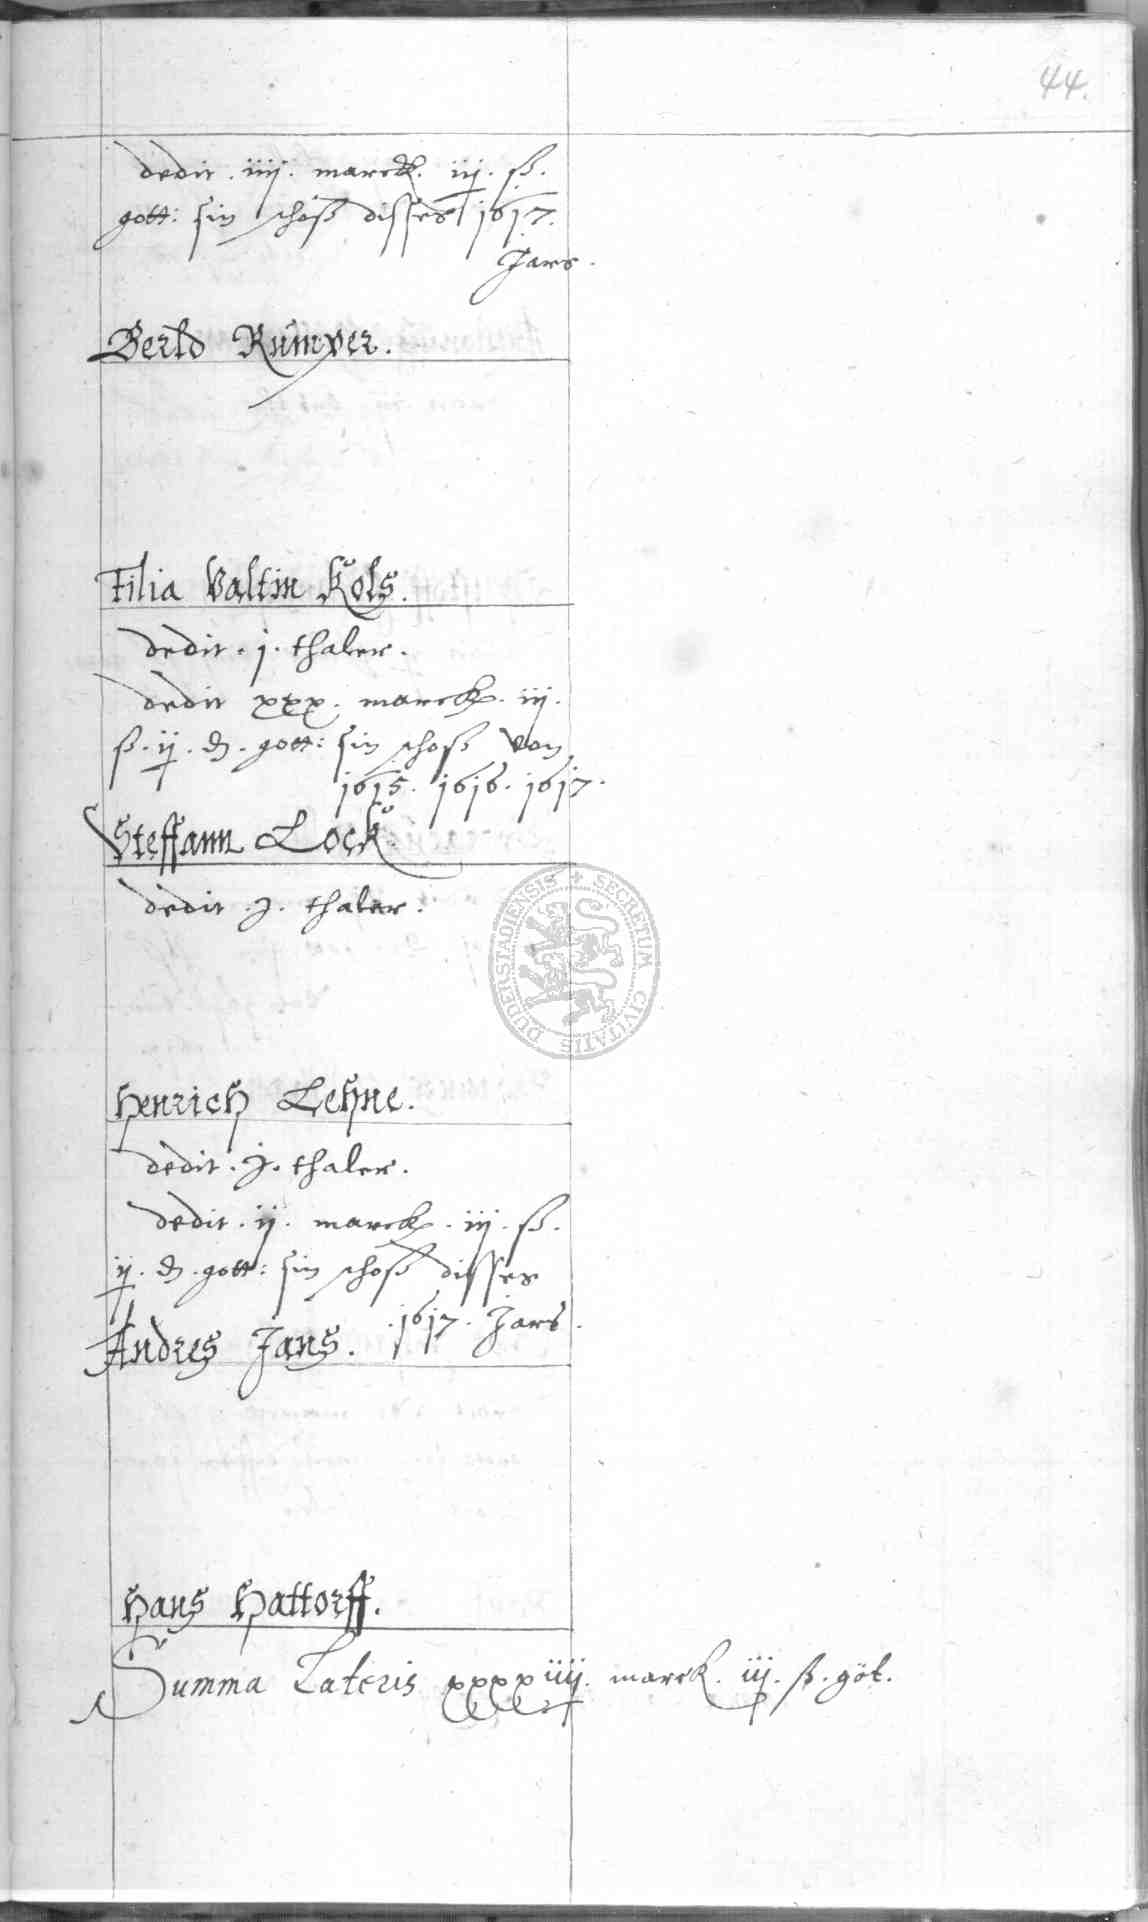 44.
dedit . iiij . marck . iij . ß .
gott: sin schoß disses 1617.
Jars .
Berld Rumper .
Filia Valtin Kols .
dedit . j . thaler .
dedit xxx . marck . iij .
ß . ij . d . gott: sin schoß von
1615 . 1616 . 1617 .
Steffann Lock
dedit . j . thaler .
DUDERSTADIENSIS + SECRETUM CIVITATIS
Henrich Lehne .
dedit . j . thaler .
dedit . ij . marck . iij . ß .
ij . d . gott: sin schoß disses
. 1617 . Jars .
Andres Jans .
Hans Hattorff .
Summa Lateris xxxxiiij . marck . iij . ß . göt .